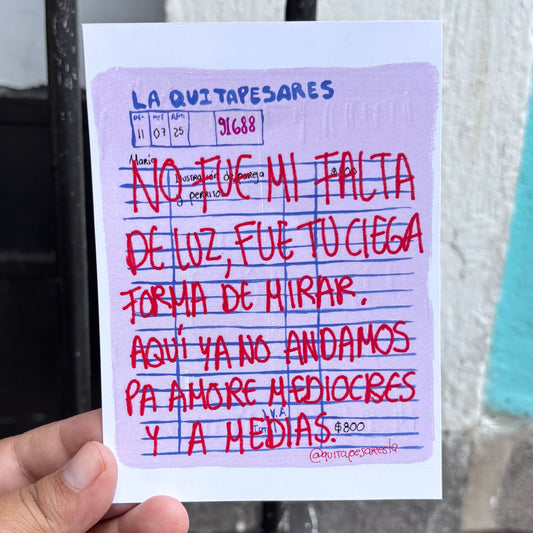 LA QUITAPESARES
Día Mes Año
11 07 25 91688
María
Ilustración de pareja $800
y perrito
NO FUE MI FALTA
DE LUZ, FUE TU CIEGA
FORMA DE MIRAR.
AQUÍ YA NO ANDAMOS
PA AMORE MEDIOCRES
Y A MEDIAS.
I.V.A
Total $800
@quitapesaresla